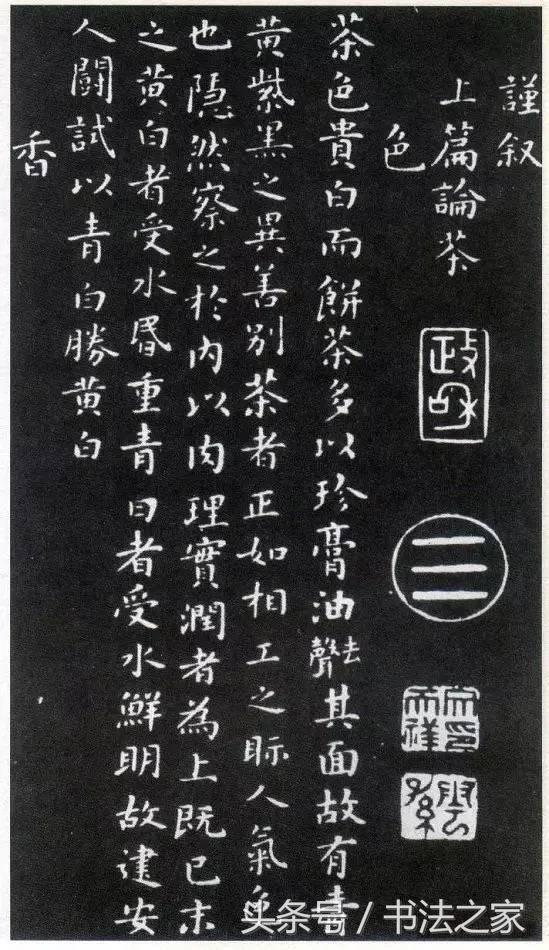 謹叙
上篇論茶
色
茶色貴白而餅茶多以珍膏油去聲其面故有青
黃紫黑之異善別茶者正如相工之眎人氣色
也隱然察之於內以肉理實潤者為上既已末
之黃白者受水昬重青白者受水鮮明故建安
人鬪試以青白勝黃白
香
政和
头条号 / 书法之家